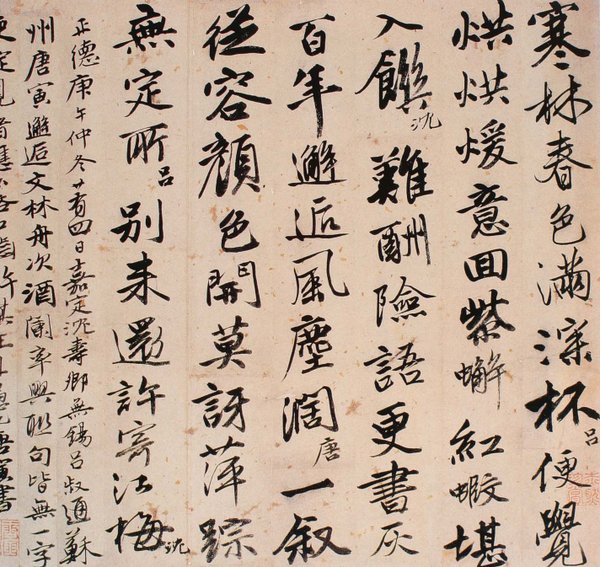 寒林春色滿深杯吕便覺
烘烘煖意回紫蠏紅蝦堪
入饌沈難酬險語更書灰
百年邂逅風塵濶唐一叙
從容顔色開莫訝萍踪
無定所吕別来還許寄江梅沈
正德庚午仲冬廿有四日嘉定沈壽卿無錫吕叔通蘇
州唐寅邂逅文林舟次酒闌率興聯句皆無一字
更定見者應不吝口齒許其狂且愚也唐寅書